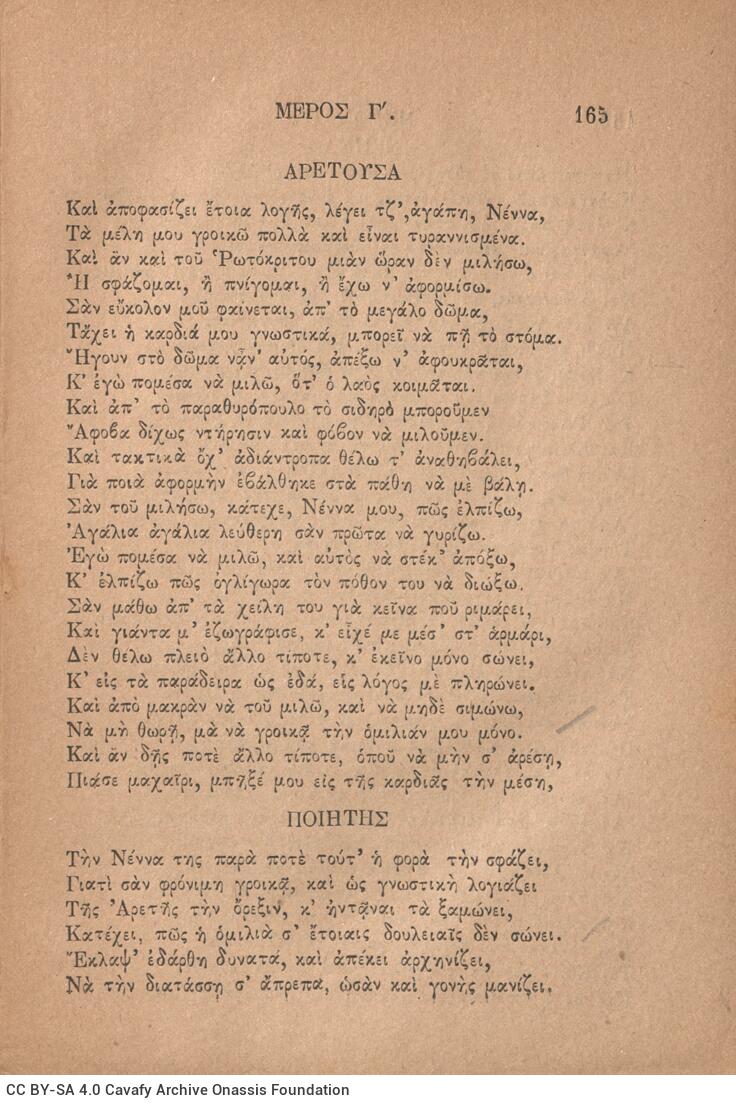 ΜΕΡΟΣ Γ′. 165
ΑΡΕΤΟΥΣΑ
Καὶ ἀποφασίζει ἔτοια λογῆς, λέγει τζ’,ἀγάπη, Νέννα,
Τὰ μέλη μου γροικῶ πολλὰ καὶ εἶναι τυραννισμένα.
Καὶ ἂν καὶ τοῦ Ῥωτόκριτου μιὰν ὥραν δὲν μιλήσω,
Ἢ σφάζομαι, ἢ πνίγομαι, ἢ ἔχω ν’ ἀφορμίσω.
Σὰν εὔκολον μοῦ φαίνεται, ἀπ’ τὸ μεγάλο δῶμα,
Τάχει ἡ καρδιά μου γνωστικά, μπορεῖ νὰ πῇ τὸ στόμα.
Ἤγουν στὸ δῶμα νᾆν’ αὐτός, ἀπέξω ν’ ἀφουκρᾶται,
Κ’ ἐγὼ πομέσα νὰ μιλῶ, ὅτ’ ὁ λαὸς κοιμᾶται.
Καὶ ἀπ’ τὸ παραθυρόπουλο τὸ σιδηρὸ μποροῦμεν
Ἄφοβα δίχως ντήρησιν καὶ φόβον νὰ μιλοῦμεν.
Καὶ τακτικὰ ὄχ’ ἀδιάντροπα θέλω τ’ ἀναθηβάλει,
Γιὰ ποιὰ ἀφορμὴν ἐβάλθηκε στὰ πάθη νὰ μὲ βάλῃ.
Σὰν τοῦ μιλήσω, κάτεχε, Νέννα μου, πῶς ἐλπίζω,
Ἀγάλια ἀγάλια λεύθερη σὰν πρῶτα νὰ γυρίζω.
Ἐγὼ πομέσα νὰ μιλῶ, καὶ αὐτὸς νὰ στέκ’ ἀπόξω,
Κ’ ἐλπίζω πῶς ὀγλίγωρα τὸν πόθον του νὰ διώξω.
Σὰν μάθω ἀπ’ τὰ χείλη του γιὰ κεῖνα ποῦ ριμάρει,
Καὶ γιάντα μ’ ἐζωγράφισε, κ’ εἶχέ με μέσ’ στ’ ἀρμάρι,
Δὲν θέλω πλειὸ ἄλλο τίποτε, κ’ ἐκεῖνο μόνο σώνει,
Κ’ εἰς τὰ παράδειρα ὡς ἐδά, εἷς λόγος μὲ πληρώνει.
Καὶ ἀπὸ μακρὰν νὰ τοῦ μιλῶ, καὶ νὰ μηδὲ σιμώνω,
Νὰ μὴ θωρῇ, μὰ νὰ γροικᾷ τὴν ὁμιλιάν μου μόνο.
Καὶ ἂν δῇς ποτὲ ἄλλο τίποτε, ὁποῦ νὰ μὴν σ’ ἀρέσῃ,
Πιάσε μαχαῖρι, μπῆξέ μου εἰς τῆς καρδιᾶς τὴν μέση,
ΠΟΙΗΤΗΣ
Τὴν Νέννα της παρὰ ποτὲ τούτ’ ἡ φορὰ τὴν σφάζει,
Γιατὶ σὰν φρόνιμη γροικᾷ, καὶ ὡς γνωστικὴ λογιάζει
Τῆς Ἀρετῆς τὴν ὄρεξιν, κ’ ἡντᾆναι τὰ ξαμώνει,
Κατέχει, πῶς ἡ ὁμιλιὰ σ’ ἔτοιαις δουλειαῖς δὲν σώνει.
Ἔκλαψ’ ἐδάρθη δυνατά, καὶ ἀπέκει ἀρχηνίζει,
Νὰ τὴν διατάσσῃ σ’ ἄπρεπα, ὡσὰν καὶ γονὴς μανίζει.
CC BY-SA 4.0 Cavafy Archive Onassis Foundation